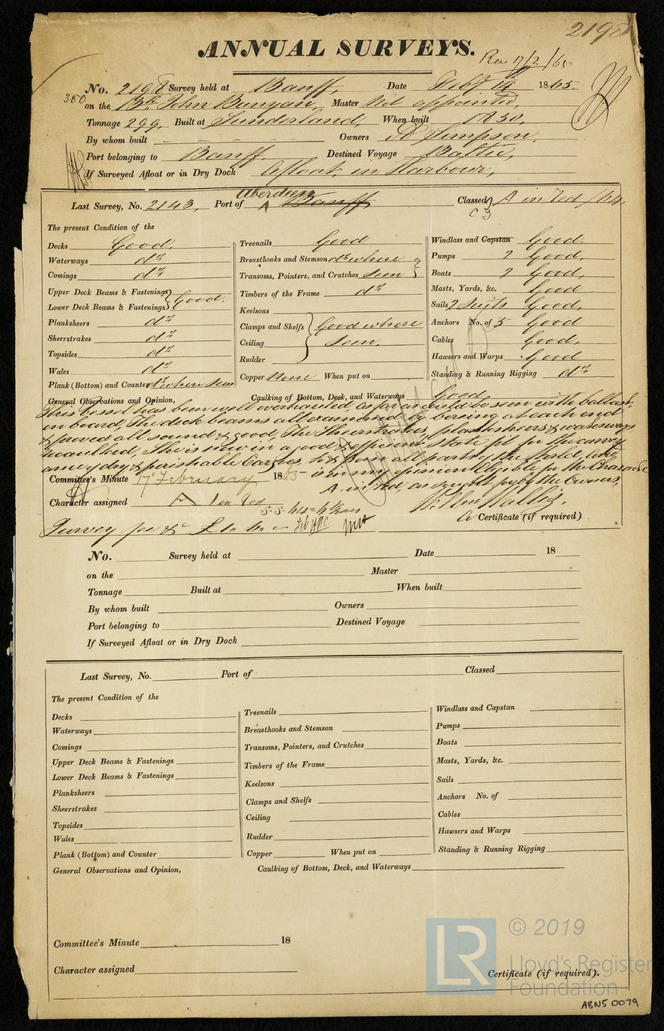 2198
ANNUAL SURVEYS.
Rec 17/2/65
No. 2198 Survey held at Banff, Date Feby 1865.
350
on the Bk John Bunyan, Master Not appointed,
Tonnage 299, Built at Sunderland, When built 1850,
By whom built Owners A Simpson,
Port belonging to Banff, Destined Voyage Baltic,
If Surveyed Afloat or in Dry Dock Afloat in Harbour,
Last Survey, No. 2143, Port of Aberdeen Banff Classed A in red
The present Condition of the
Decks Good,
Waterways do
Comings do
Upper Deck Beams & Fastenings
Lower Deck Beams & Fastenings Good.
Planksheers do
Sheerstrakes do
Topsides do
Wales do
Plank (Bottom) and Counter do where seen
Treenails Good
Breasthooks and Stemson do where
Transoms, Pointers, and Crutches seen
Timbers of the Frame do
Keelsons
Clamps and Shelfs Good where
Ceiling seen,
Rudder
Copper None When put on
Windlass and Capstan Good,
Pumps 2 Good,
Boats 2 Good,
Masts, Yards, &c. Good
Sails 2 Suits Good,
Anchors No. of 5 Good
Cables Good,
Hawsers and Warps Good
Standing & Running Rigging do
General Observations and Opinion, Caulking of Bottom, Deck, and Waterways Good
This vessel has been well overhauled, as far as could be seen with ballast
in board, The deck beams all examined by boring at each end
& proved all sound & good, The Sheerstrakes, planksheers & waterways
recaulked, She is now in a good & efficient state fit for the carry
ance of dry & perishable Cargoes to & from all parts of the World,
Committee's Minute 17 February 1865 is in my opinion Eligible for the Character
A in red, as requested by the Owners,
Character assigned A in red
Certificate (if required)
Survey
No. Survey held at Date 18
on the Master
Tonnage Built at When built
By whom built Owners
Port belonging to Destined Voyage
If Surveyed Afloat or in Dry Dock
Last Survey, No. Port of Classed
The present Condition of the
Decks
Waterways
Comings
Upper Deck Beams & Fastenings
Lower Deck Beams & Fastenings
Planksheers
Sheerstrakes
Topsides
Wales
Plank (Bottom) and Counter
Treenails
Breasthooks and Stemson
Transoms, Pointers, and Crutches
Timbers of the Frame
Keelsons
Clamps and Shelfs
Ceiling
Rudder
Copper When put on
Windlass and Capstan
Pumps
Boats
Masts, Yards, &c.
Sails
Anchors No. of
Cables
Hawsers and Warps
Standing & Running Rigging
General Observations and Opinion, Caulking of Bottom, Deck, and Waterways
Committee's Minute 18
Character assigned
Certificate (if required).
LR © 2019
Lloyd's Register
Foundation
ABN5 0079